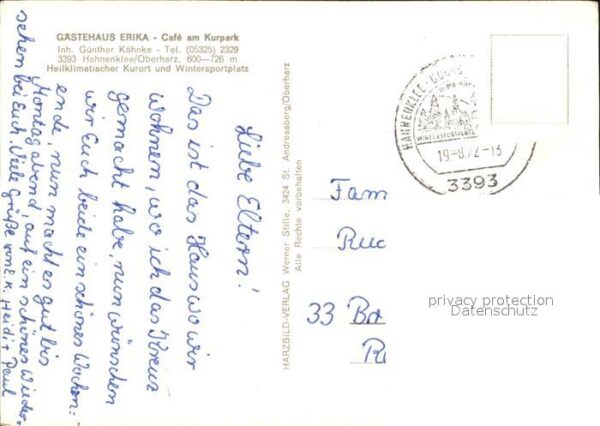 GÄSTEHAUS ERIKA - Café am Kurpark
Inh. Günther Köhnke - Tel. (05325) 2329
3393 Hahnenklee/Oberharz, 600—726 m
Heilklimatischer Kurort und Wintersportplatz
Liebe Eltern!
Das ist das Haus wo wir
wohnen, wo ich das Kreuz
gemacht habe, nun wünschen
wir Euch beide ein schönes Wochen:
ende, nun macht es gut bis
Montag abend, auf ein schönes Wieder-
sehen bei Euch. Viele Grüße von E. K. Heidi + Paul
HARZBILD-VERLAG Werner Stille, 3424 St. Andreasberg/Oberharz
Alle Rechte vorbehalten
HAHNENKLEE-BOCKS
WINTERSPORTPLATZ
19-8.72-13
3393
Fam
Ruc
33 Br
privacy protection
Datenschutz